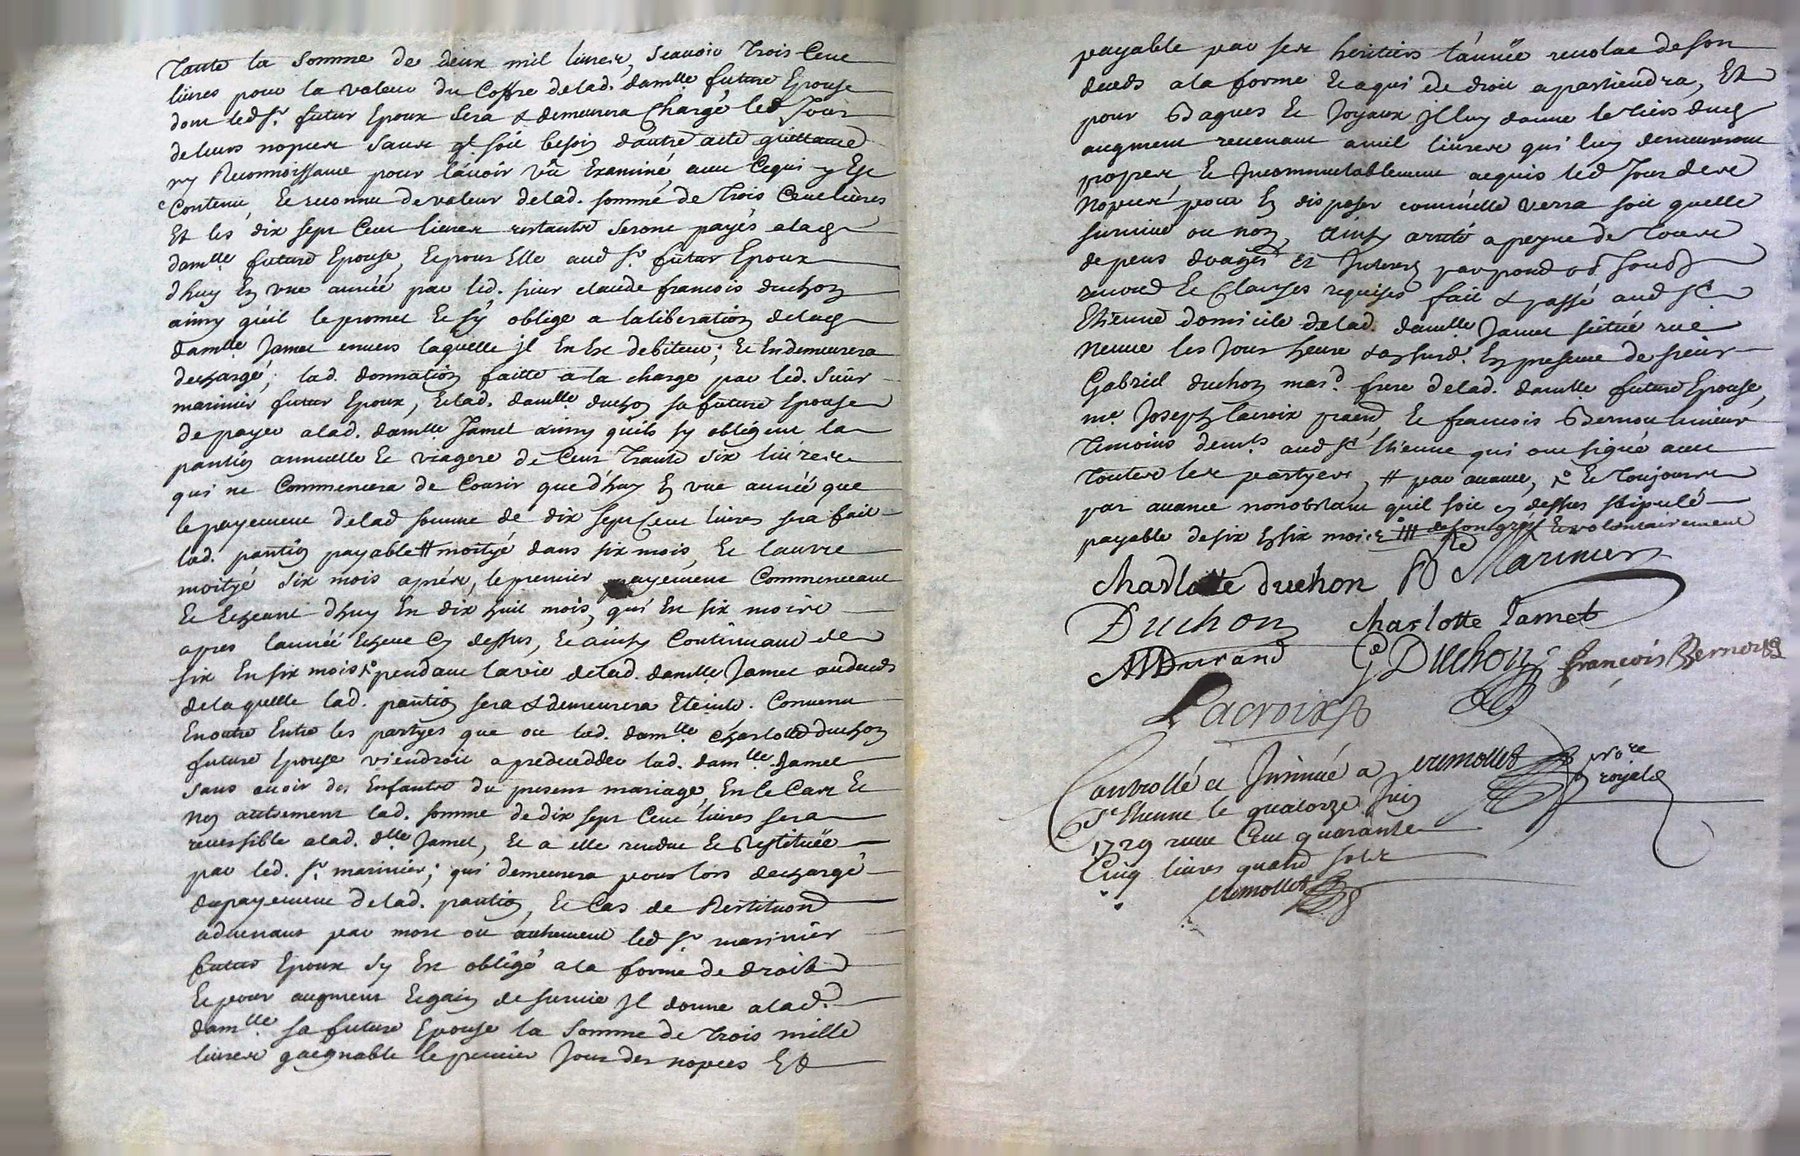 tante la somme de deux mil livres, scavoir trois Cent
livres pour la valeur du Coffre delad. damlle future Epouse
dont led Sr. futur Epoux sera & demeurera Chargé led Jour
deleurs nopces sans ql soit besoin dautre acte quittance
ny Reconnoissance pour lavoir vû Examiné avec Cequi y Est
Contenu, Et reconnu devaleur delad. somme de trois Cent livres
Et les dix sept Cent livres restantes seront payés alad
damlle future Epouse, Et pour Elle aud Sr. futur Epoux
dhuy En une année par led. sieur claude francois duchon
ainsy quil le promet Et sy oblige a laliberation delad
damlle Jamet envers laquelle jl En Est debiteur; Et Endemeurera
dechargé, lad. donnation faitte a la charge par led. Sieur
marinier futur Epoux, Et lad. damlle. duchon sa future Epouse
de payer alad. damlle Jamet ainsy quils sy obligent la
pantion annuelle Et viagere de Cent trante six livres
qui ne Commencera de Courir que dhuy En une année que
le payement delad somme de dix sept Cent livres sera fait
lad. pantion payable # moityé dans six mois, Et lautre
moityé six mois apres, le premier payement Commenceant
Et Echeant dhuy En dix huit mois, qui En six mois
apres lannée Echeue Cy dessus, Et ainsy Continuant de
six En six mois pendant la vie delad. damlle Jamet au deceds
delaquelle lad. pantion sera & demeurera Eteinte. Convenu
Enoutre Entre les partyes que ou lad. damlle charlotte duchon
future Epouse viendroit a predecedder lad. damlle. Jamet
sans avoir des Enfants du present mariage, En Ce Cas Et
non autrement lad. somme de dix sept Cent livres sera
reversible alad. dlle Jamet, Et a elle rendue Et Restituëe
par led. Sr. marinier; qui demeurera pour lors dechargé
dupayement delad. pantion, Et Cas de Restitution
advenant par mort ou autrement led Sr. marinier
futur Epoux sy Est obligé a la forme de droit
Et pour augment Et gain de survie jl donne alad.
damlle sa future Epouse la somme de trois mille
livres gaegnable le premier Jour des nopces Et
payable par ses heritiers lannëe revolue de son
deceds a la forme Et a qui de droit apartiendra, Et
pour Bagues Et Joyaux jl luy donne le tiers dud
augment revenant a mil livres qui luy demeureront
propres Et Jncommutablement acquis led Jour des
nopces pour En disposer comme elle verra soit quelle
survive ou non, Ainsy arreté a peyne de tous
depens domages Et Interets par
renond Et Clauses requises fait & passé aud St
Etienne domicile delad. damlle Jamet scituë rue
neuve les Jour heure & an susd. En presence de sieur
Gabriel duchon mard. frere delad. damlle future Epouse,
me. Joseph lacroix praticn, Et francois Bernou
temoins demts. aud St. Etienne qui ont signé avec
toutes les partyes, # par avance, Et toujours
par avance nonobstant quil soit cy dessus stipulé
payable de six En six mois Et volontairement
Charlotte duchon Marinier
Duchon Charlotte Jamet
Durand G Duchon francois Bernou
Lacroix
Controllé et Jnsinué a cremollet nore royal
St Etienne le quatorze Juin
1729 receu Cent quarante
Cinq livres quatre sols
cremollet